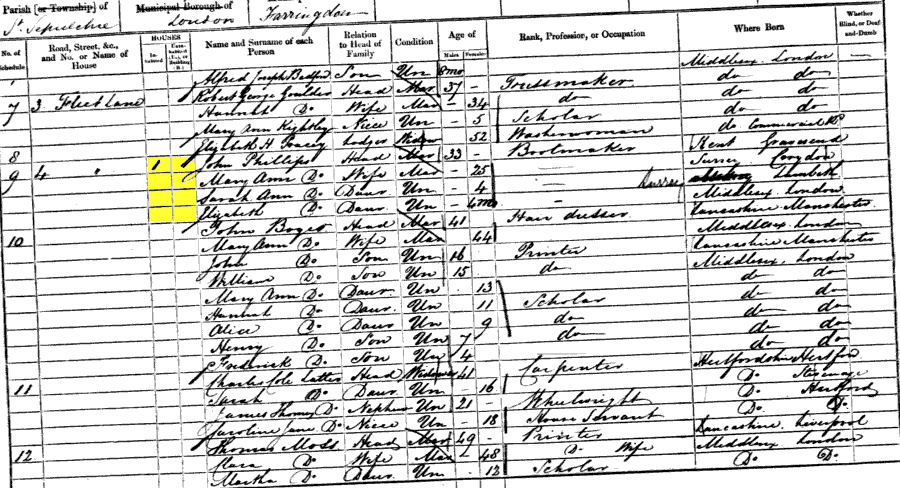 Parish [or Township] of Municipal Borough of
St. Sepulchre London Farringdon
No. of Schedule Road, Street, &c., and No. or Name of House HOUSES Inhabited Uninhabited (U.), or Building (B.) Name and Surname of each Person Relation to Head of Family Condition Age of Males Females Rank, Profession, or Occupation Where Born Whether Blind, or Deaf-and-Dumb
Alfred Joseph Bedford Son Un 8mo Middlesex London
7 3 Fleet Lane Robert George Goulder Head Mar 37 - do do
Hannah Do Wife Mar - 34 do do do
Mary Ann Un - 5 Scholar do do
8 Elizabeth H Lodger Widow 52 Washerwoman do
9 4 " 1 John Phillips Head Mar 33 - Bootmaker Kent Gravesend
Mary Ann Do Wife Mar - 25 - Surrey Croydon
Sarah Ann Do Daur Un - 4 - Surrey Lambeth
Elizabeth Do Daur Un - 4mo - Middlesex London
10 John Head Mar 41 Hair dresser Lancashire Manchester
Mary Ann Do Wife Mar 44 Middlesex London
John Do Son Un 16 Printer Lancashire Manchester
William Do Son Un 15 do Middlesex London
Mary Ann Do Daur Un 13 do do
Hannah Do Daur Un 11 Scholar do do
Alice Do Daur Un 9 do do do
Henry Do Son Un 7 do do do
Frederick Do Son Un 4 do do
11 Charles Cole Head Widower 41 Carpenter Hertfordshire Hertford
Sarah Do Daur Un - 16 Do Stevenage
James Thomas Do Nephew Un 21 - Wheelwright Do Hertford
Caroline Jane Do Niece Un - 18 House Servant Do Do
12 Thomas Moss Head Mar 49 - Printer Lancashire Liverpool
Do Wife Mar - 48 Do Wife Middlesex London
Martha Do Daur Un - 12 Scholar Do Do